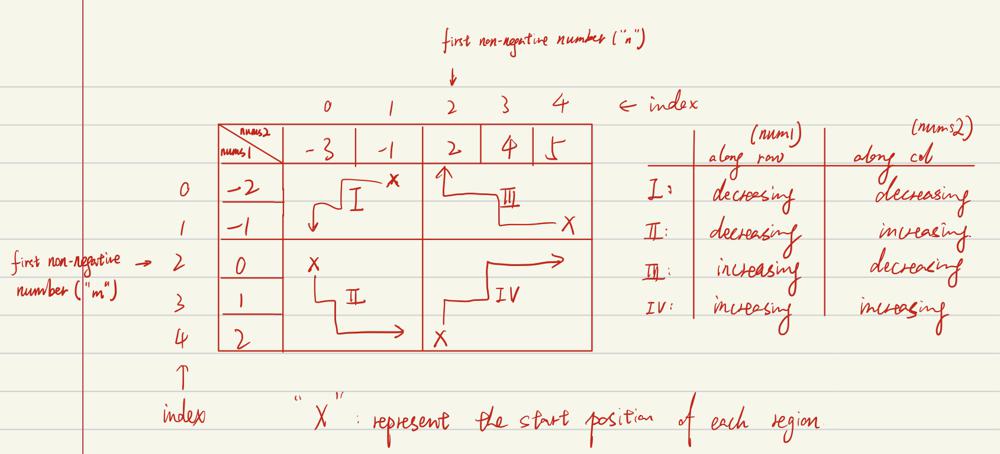 first non-negative number ("n")
↓
0 1 2 3 4 ← index
nums2
nums1
-3 -1 2 4 5
0 -2
1 -1
first non-negative number ("m") → 2 0
3 1
4 2
↑
index
X I
III X
X II
IV X
(num1) (nums2)
along row along col
I: decreasing decreasing
II: decreasing increasing
III: increasing decreasing
IV: increasing increasing
"X": represent the start position of each region